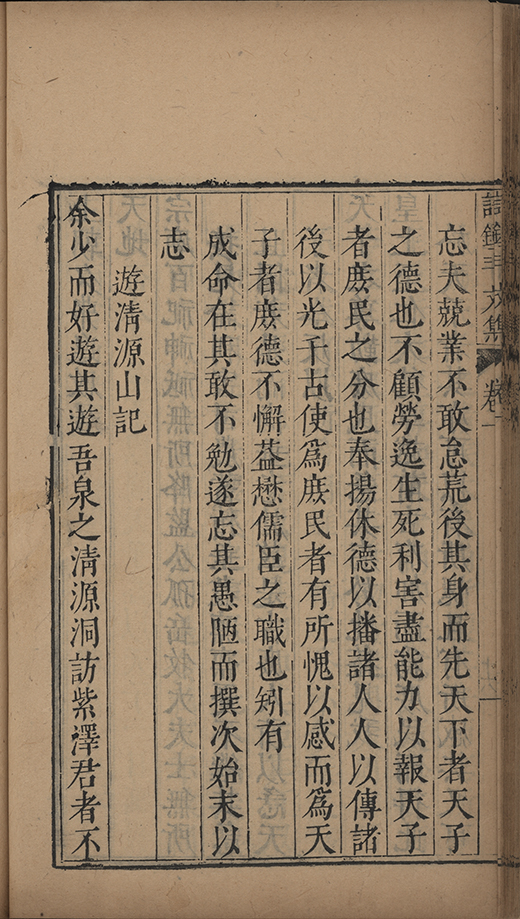 忘夫兢業不敢怠荒後其身而先天下者天子
之德也不顧勞逸生死利害盡能力以報天子
者庶民之分也奉揚休德以播諸人人以傳諸
後以光千古使為庶民者有所愧以感而為天
子者庶德不懈益懋儒臣之職也矧有
成命在其敢不勉遂忘其愚陋而撰次始末以
志
遊清源山記
余少而好遊其遊吾泉之清源洞訪紫澤君者不